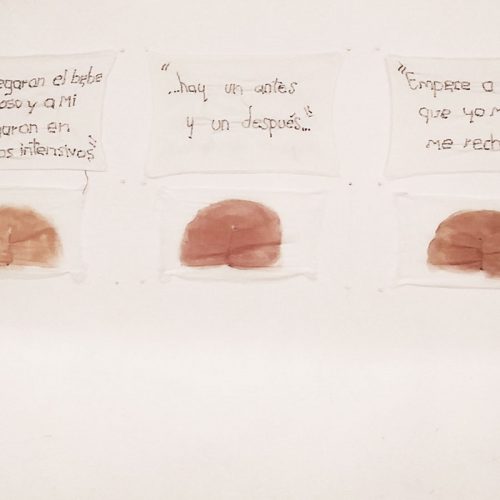 egaron el bebe
oso y a Mi
garon en
os intensivos”
“...hay un antes
y un después...”
“Empece a
que yo
me rech